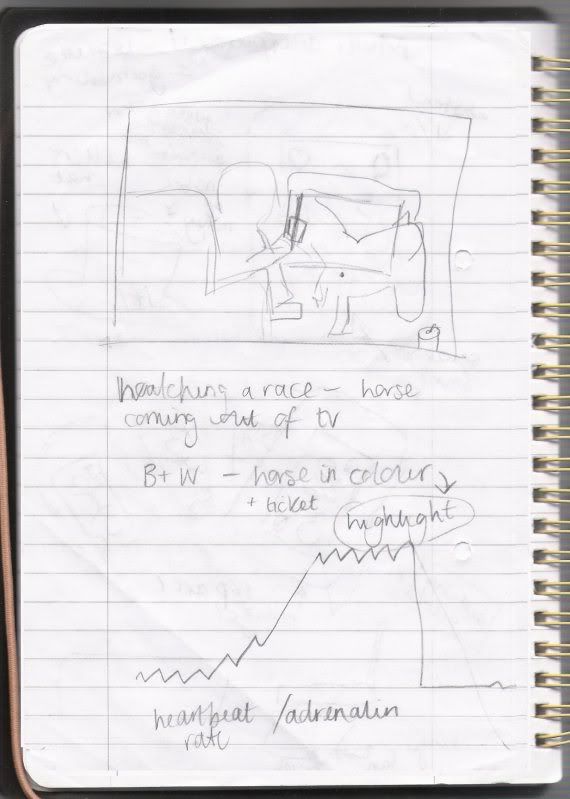 watching a race – horse
coming out of tv
B+W – horse in colour
+ ticket
highlight
heartbeat /adrenalin
rate